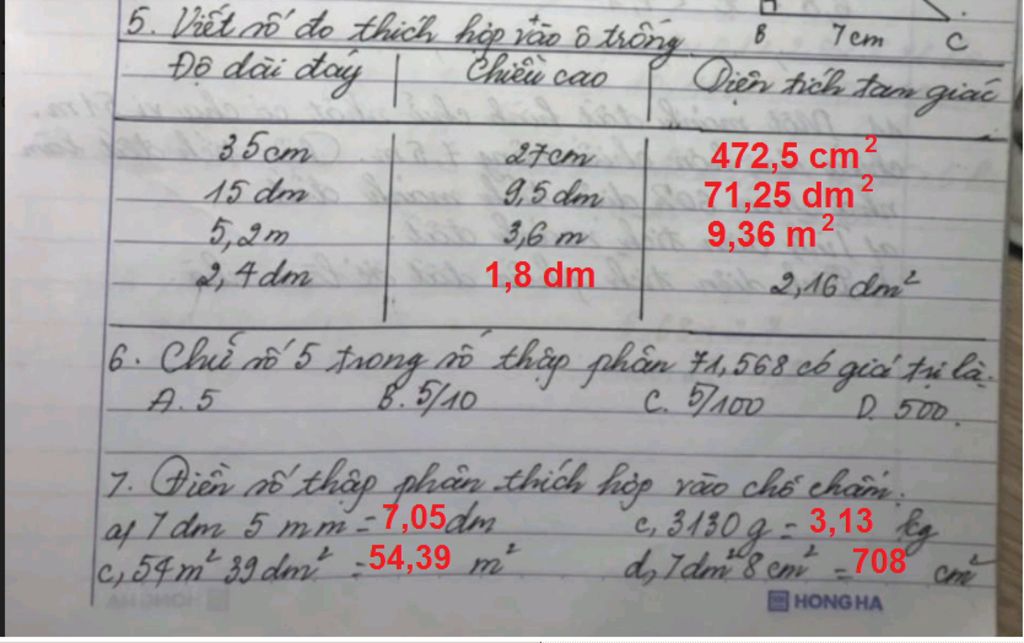 B 7cm C
5. Viết số đo thích hợp vào ô trống.
Độ dài đáy Chiều cao Diện tích tam giác
35cm 27cm 472,5 cm²
15 dm 9,5 dm 71,25 dm²
5,2m 3,6 m 9,36 m²
2,4dm 1,8 dm 2,16 dm²
6. Chữ số 5 trong số thập phân 71,568 có giá trị là.
A. 5 B. 5/10 C. 5/100 D. 500.
7. Điền số thập phân thích hợp vào chỗ chấm.
a, 7 dm 5 mm = 7,05 dm c, 3130 g = 3,13 kg
c, 54 m² 39 dm² = 54,39 m² d, 7 dm² 8 cm² = 708 cm²
HONG HA